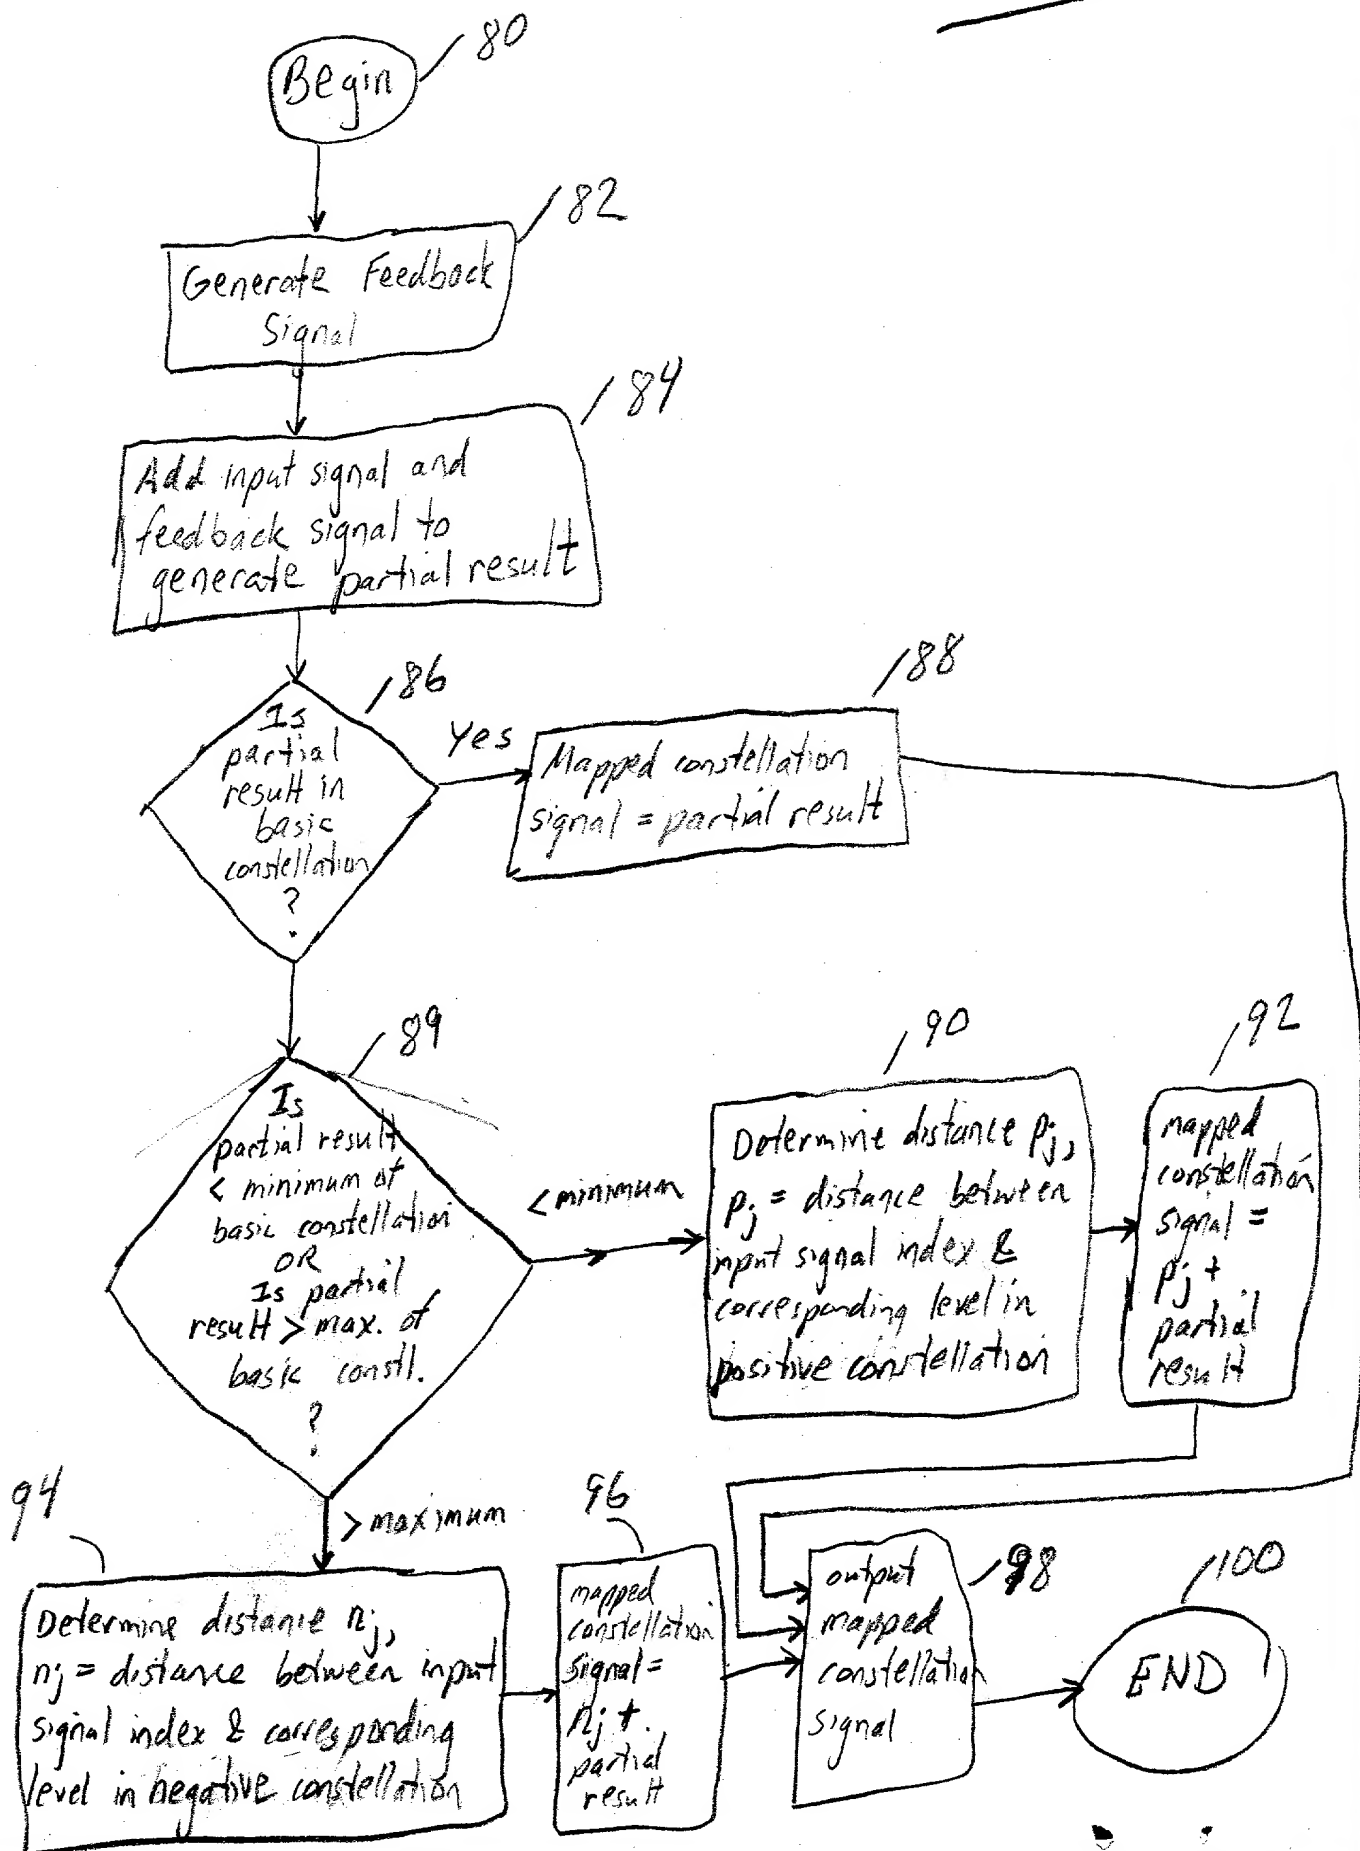 80
Begin
82
Generate Feedback
Signal
84
Add input signal and
feedback signal to
generate partial result
86
Is
partial
result in
basic
constellation
?
Yes
88
Mapped constellation
signal = partial result
89
Is
partial result
< minimum of
basic constellation
OR
Is partial
result > max. of
basic constl.
?
< minimum
90
Determine distance pj,
pj = distance between
input signal index &
corresponding level in
positive constellation
92
mapped
constellation
signal =
pj +
partial
result
> maximum
94
Determine distance nj,
nj = distance between input
signal index & corresponding
level in negative constellation
96
mapped
constellation
signal =
nj +
partial
result
98
output
mapped
constellation
signal
100
END